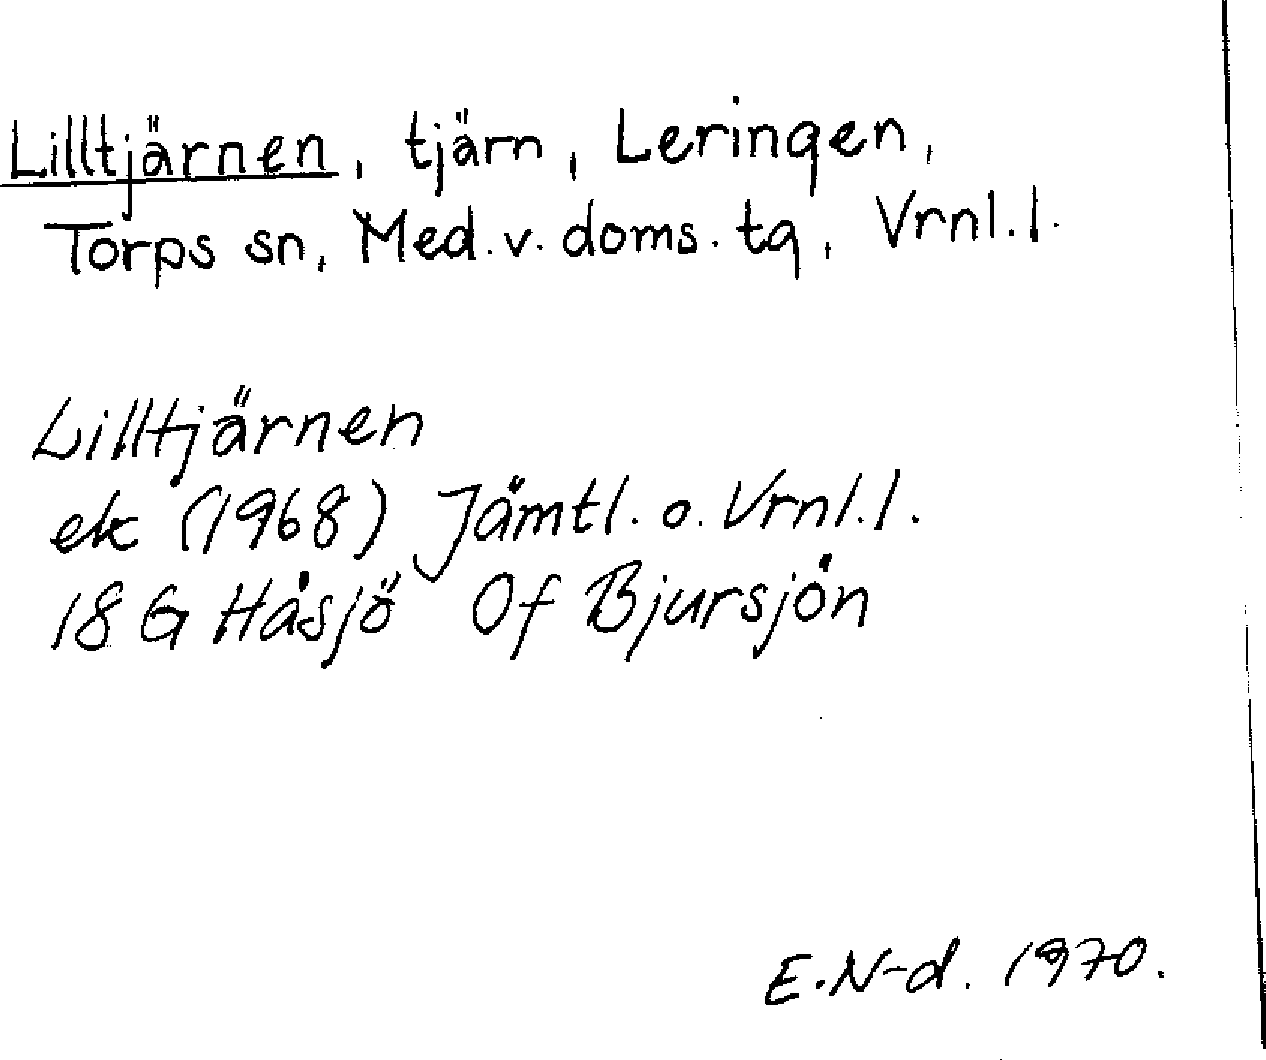 Lilltjärnen, tjärn, Leringen,
Torps sn, Med. v. doms. tg, Vrnl. l.
Lilltjärnen
ek (1968) Jämtl. o. Vrnl. l.
18 G Håsjö Of Bjursjön
E. N-d. 1970.